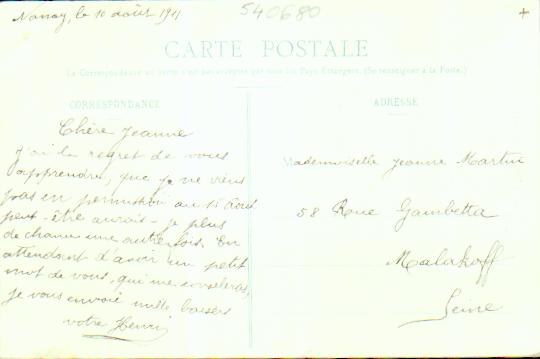 Nancy, le 10 août 1911
540680
+
CARTE POSTALE
La Correspondance au verso n'est pas acceptée par tous les Pays Étrangers. (Se renseigner à la Poste.)
CORRESPONDANCE
Chère Jeanne
J'ai le regret de vous
apprendre, que je ne viens
pas en permission au 15 Août
peut-être aurais-je plus
de chance une autre fois. En
attendant d'avoir un petit
mot de vous, qui me consolera,
je vous envoie mille baisers
votre Henri
ADRESSE
Mademoiselle Jeanne Martin
58 Rue Gambetta
Malakoff
Seine